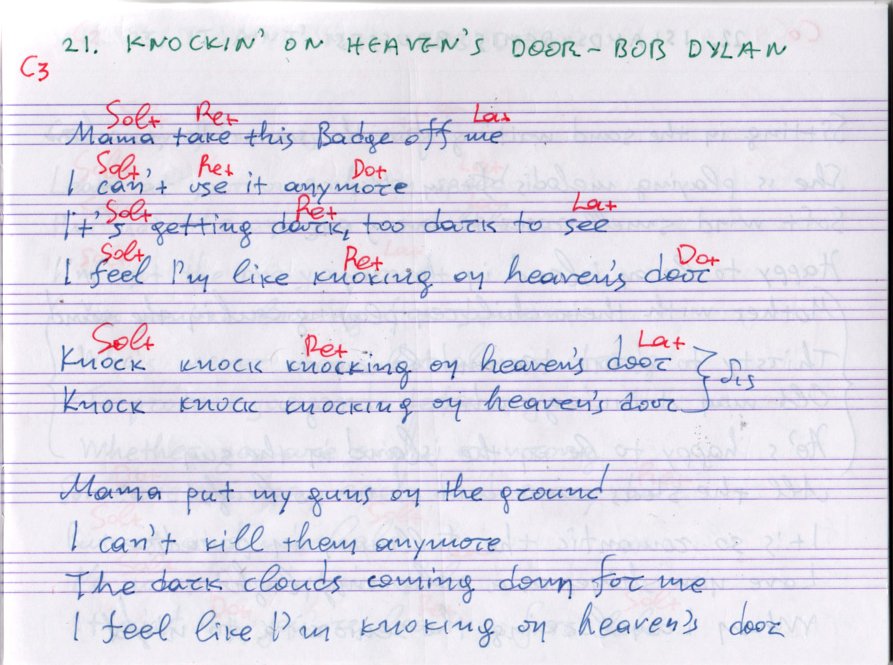 21. KNOCKIN' ON HEAVEN'S DOOR - BOB DYLAN
C3
Sol+ Re+ La+
Mama take this Badge off me
Sol+ Re+ Do+
I can't use it anymore
Sol+ Re+ La+
It's getting dark, too dark to see
Sol+ Re+ Do+
I feel I'm like knoking on heaven's door
Sol+ Re+ La+
Knock knock knocking on heaven's door
Knock knock knocking on heaven's door } bis
Mama put my guns on the ground
I can't kill them anymore
The dark clouds coming down for me
I feel like I'm knoking on heaven's door